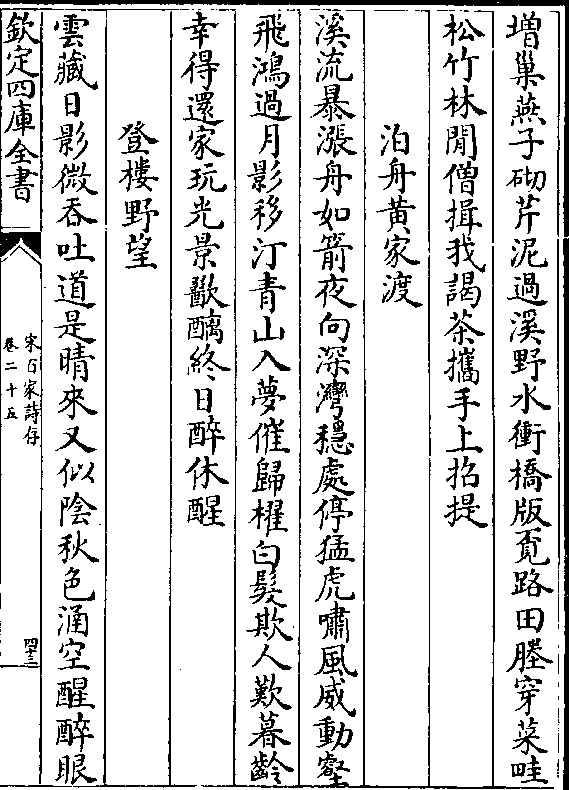 増巢燕子砌芹泥過溪野水衝橋版覔路田塍穿菜畦
松竹林閒僧揖我謁茶攜手上招提
泊舟黃家渡
溪流暴漲舟如箭夜向深灣穩處停猛虎嘯風威動壑
飛鴻過月影移汀青山入夢催歸櫂白髮欺人歎暮齡
幸得還家玩光景歠醨終日醉休醒
登樓野望
雲藏日影微吞吐道是晴來又似陰秋色涵空醒醉眼
欽定四庫全書
宋百家詩存
卷二十五
四十三